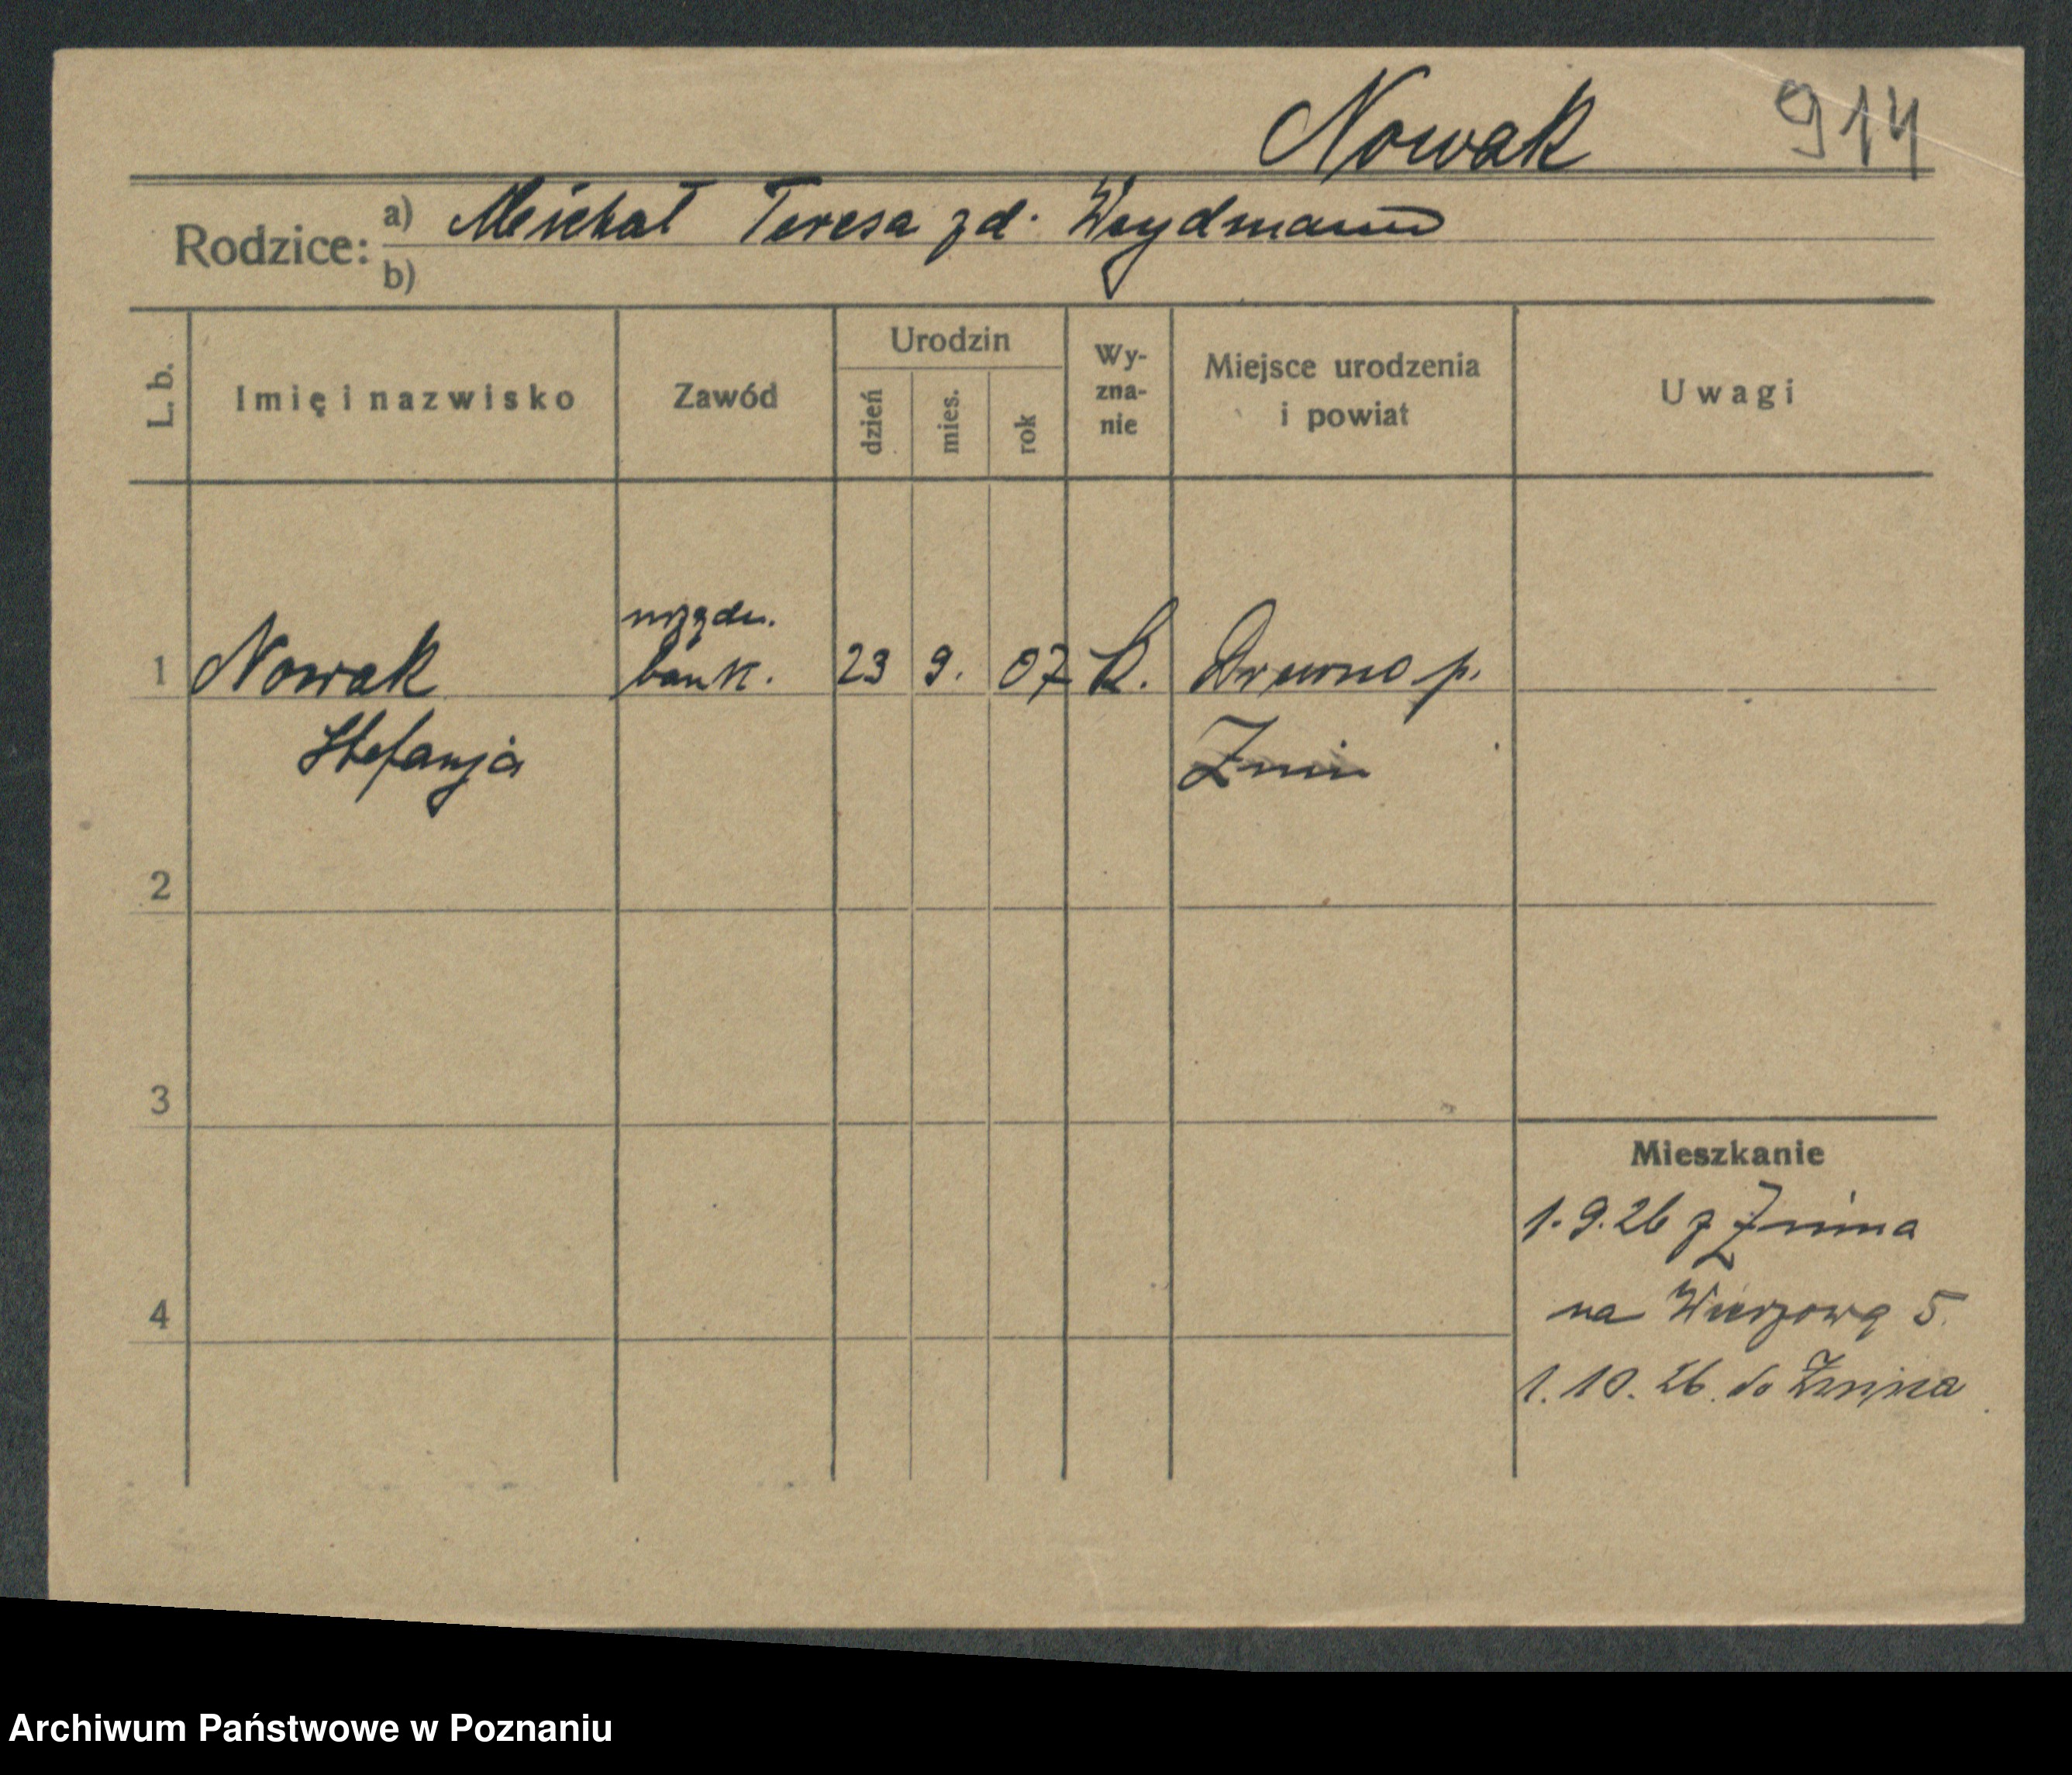 Nowak 914
Rodzice: a) Michał Teresa zd. Weydmann
b)
L. b. Imię i nazwisko Zawód Urodzin dzień mies. rok Wy-zna-nie Miejsce urodzenia i powiat Uwagi
urzędn.
1 Nowak bank. 23 9. 07 k. Drewno p.
Stefanja Żnin
2
3
Mieszkanie
1.9.26 z Żnina
4 na Wierzową 5.
1.10.26. do Żnina
Archiwum Państwowe w Poznaniu